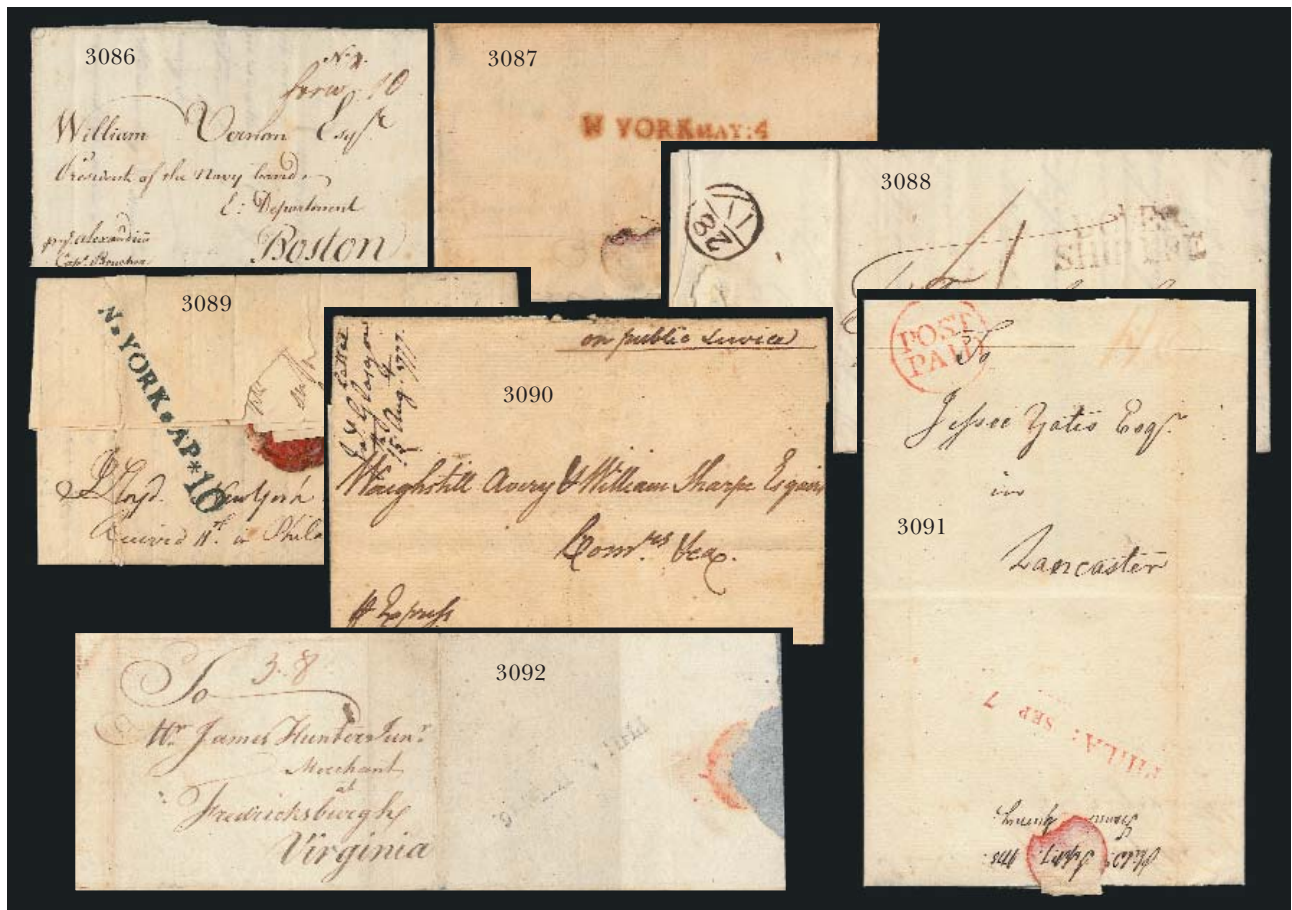 3086
N. Y.
forw. 10
William Vernon Esqr.
President of the Navy board
E: Department
Boston
pr. Alexandria
Capt. Boucher
3087
W YORK MAY:4
3088
11
28
SHIP LRE
3089
N*YORK*AP*10
Lloyd. New York
Received 11th. in Phila
3090
on public Service
Letter
Glasgow
15 Aug. 1777
Waighstill Avery & William Sharpe Esquires
Comrs. &ca.
pr Express
3091
POST
PAID
To
Jesse Yates Esqr.
in
Lancaster
PHILA: SEP 7
3092
To 3.8
Mr. James Hunter Junr.
Merchant
at
Fredricksburgh
Virginia